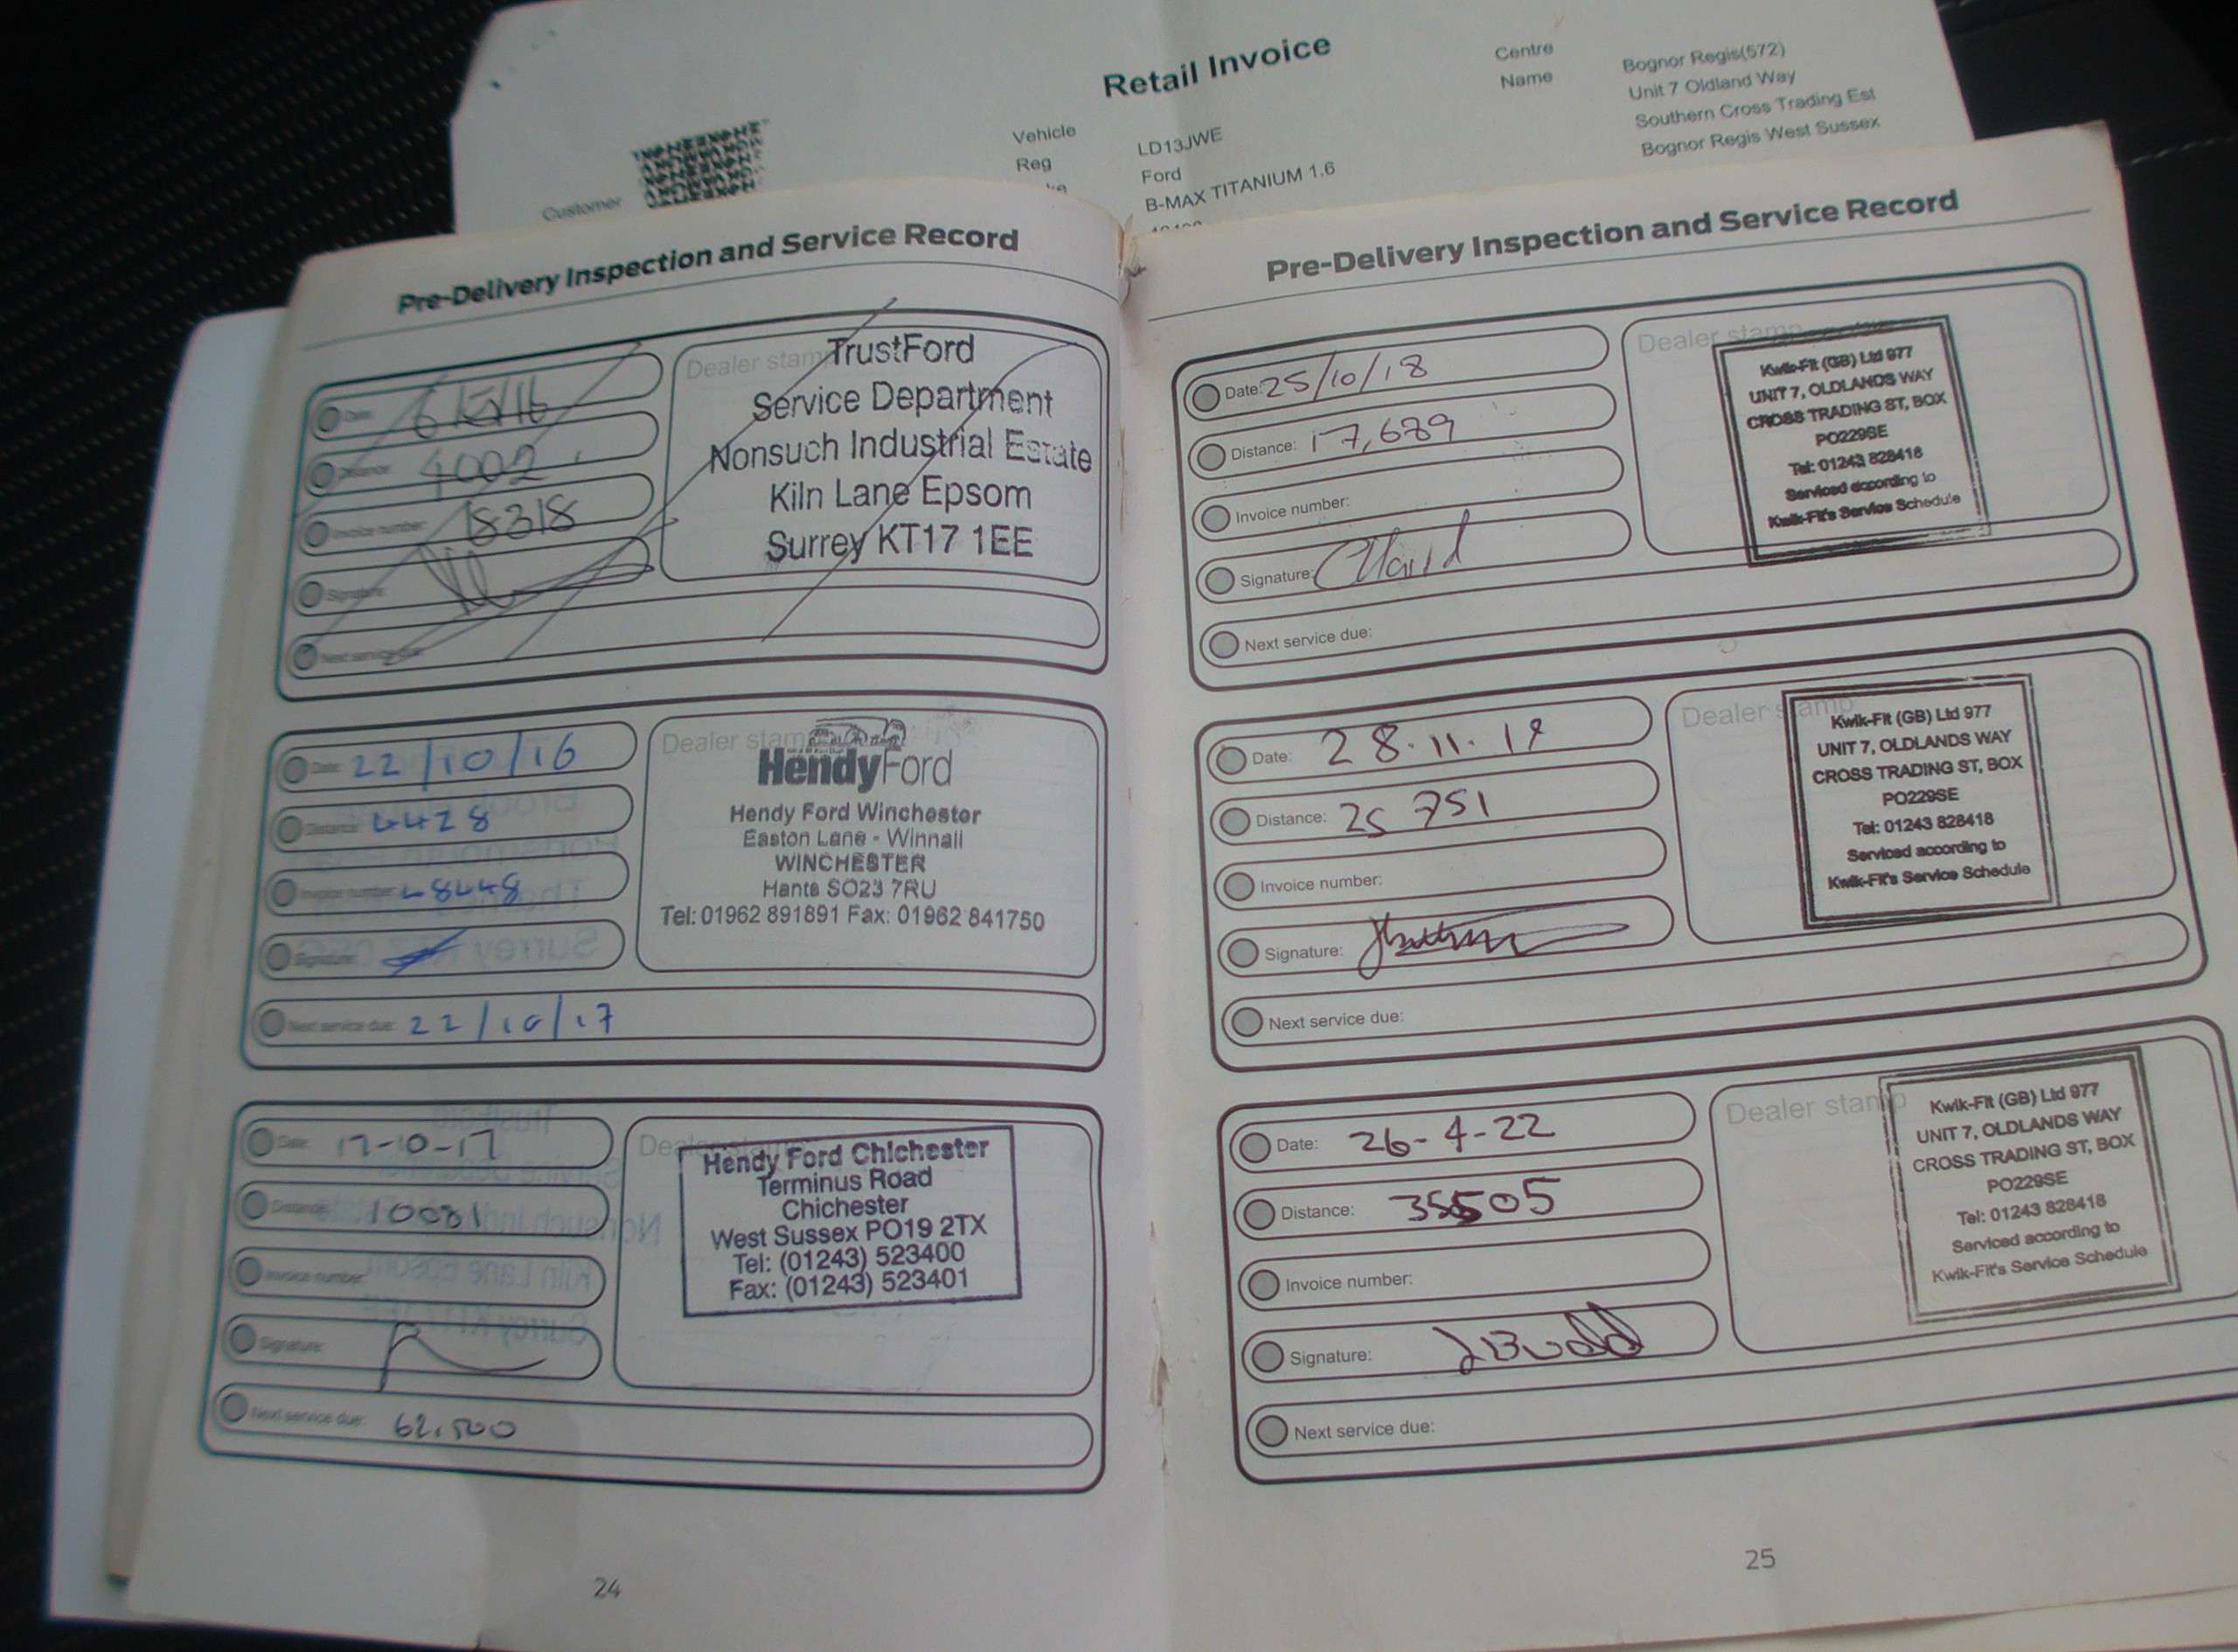 Retail Invoice
Centre
Name
Bognor Regis(572)
Unit 7 Oldland Way
Southern Cross Trading Est
Bognor Regis West Sussex
Vehicle
Reg
LD13JWE
Ford
B-MAX TITANIUM 1.6
Customer
Pre-Delivery Inspection and Service Record
Date:
Distance: 4002
Invoice number: 18318
Signature:
Next service due:
Dealer stamp
TrustFord
Service Department
Nonsuch Industrial Estate
Kiln Lane Epsom
Surrey KT17 1EE
Date: 22/10/16
Distance: 4428
Invoice number: 48448
Signature:
Next service due: 22/10/17
Dealer stamp
HendyFord
Hendy Ford Winchester
Easton Lane - Winnall
WINCHESTER
Hants SO23 7RU
Tel: 01962 891891 Fax: 01962 841750
Date: 17-10-17
Distance: 10081
Invoice number:
Signature:
Next service due: 62,500
Dealer stamp
Hendy Ford Chichester
Terminus Road
Chichester
West Sussex PO19 2TX
Tel: (01243) 523400
Fax: (01243) 523401
24
Pre-Delivery Inspection and Service Record
Date: 25/10/18
Distance: 17,689
Invoice number:
Signature:
Next service due:
Dealer stamp
Kwik-Fit (GB) Ltd 977
UNIT 7, OLDLANDS WAY
CROSS TRADING ST, BOX
PO229SE
Tel: 01243 828418
Serviced according to
Kwik-Fit's Service Schedule
Date: 28.11.19
Distance: 25 751
Invoice number:
Signature:
Next service due:
Dealer stamp
Kwik-Fit (GB) Ltd 977
UNIT 7, OLDLANDS WAY
CROSS TRADING ST, BOX
PO229SE
Tel: 01243 828418
Serviced according to
Kwik-Fit's Service Schedule
Date: 26-4-22
Distance: 35505
Invoice number:
Signature: J Budd
Next service due:
Dealer stamp
Kwik-Fit (GB) Ltd 977
UNIT 7, OLDLANDS WAY
CROSS TRADING ST, BOX
PO229SE
Tel: 01243 828418
Serviced according to
Kwik-Fit's Service Schedule
25